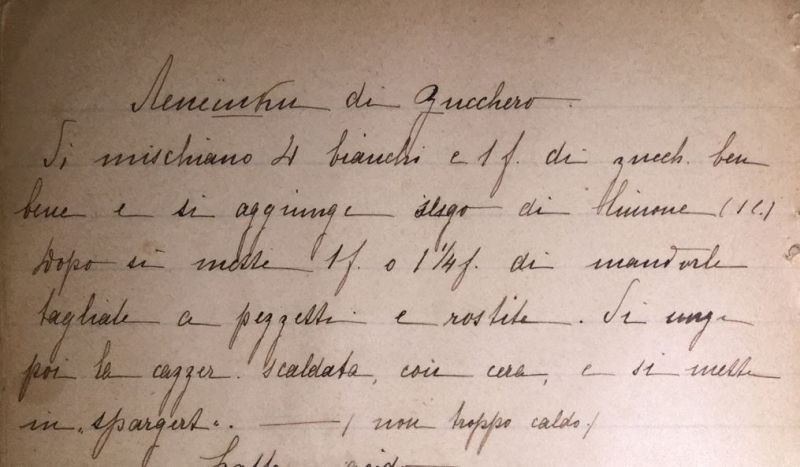 Лепешки di Zucchero.
Si mischiano 4 bianchi e 1 f. di zucch. ben
bene e si aggiunge sugo di limone (1 l.)
Dopo si mette 1 f. o 1 1/4 f. di mandorle
tagliate a pezzetti e rostite. Si unge
poi la cazzer. scaldata, con cera, e si mette
in „spargert“. — ( non troppo caldo. )
Latte acido